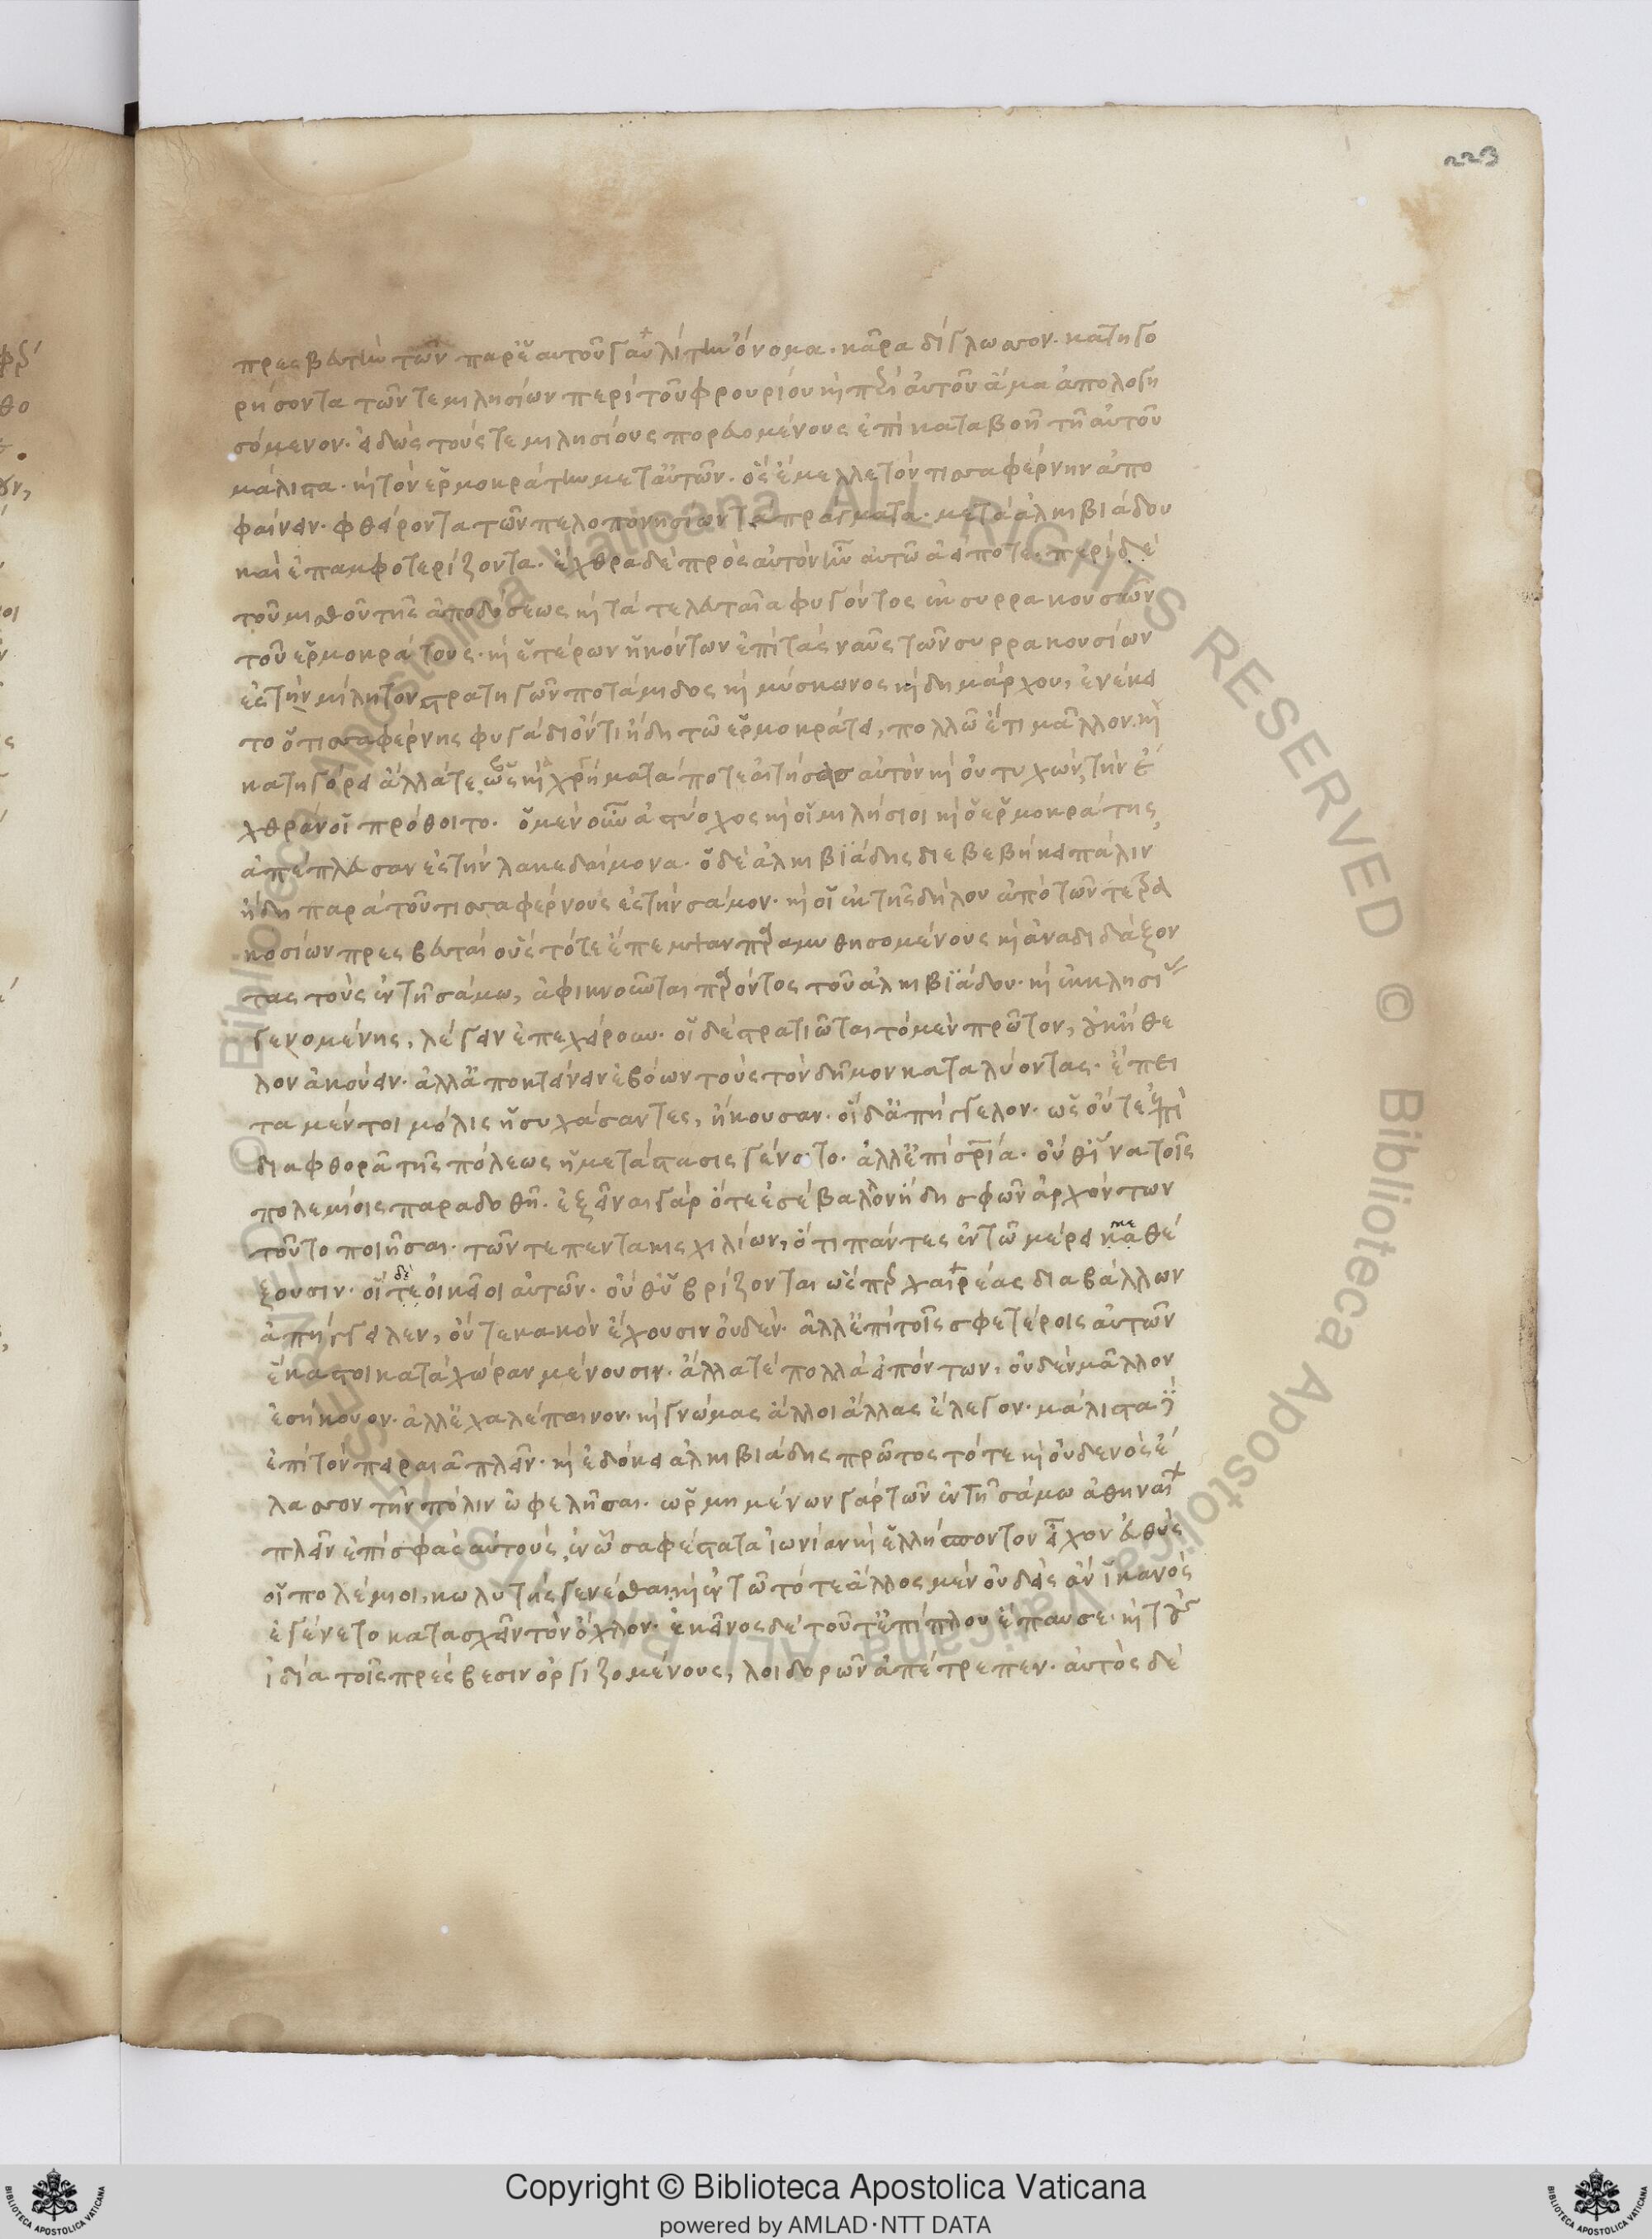 223
πρεσβευτὴν τῶν παρ' ἑαυτοῦ γαυλίτην ὄνομα· κᾶρα δίγλωσσον· κατηγο
ρήσοντα τῶν τε μιλησίων περὶ τοῦ φρουρίου καὶ περὶ αὐτοῦ ἅμα ἀπολογη
σόμενον· εἰδὼς τούς τε μιλησίους πορευομένους ἐπὶ καταβοῆ τῆ αὐτοῦ
μάλιστα· καὶ τὸν ἑρμοκράτην μετ' αὐτῶν· ὃς ἔμελλε τὸν τισσαφέρνην ἀπο
φαίνειν· φθείροντα τῶν πελοποννησίων τὰ πράγματα· μετὰ ἀλκιβιάδου
καὶ ἐπαμφοτερίζοντα· ἔχθρα δὲ πρὸς αὐτὸν ἦν αὐτῶ ἀεί ποτε· περὶ δὲ
τοῦ μισθοῦ τῆς ἀποδόσεως καὶ τὰ τελευταῖα φυγόντος ἐκ συρρακουσῶν
τοῦ ἑρμοκράτους· καὶ ἑτέρων ἡκόντων ἐπὶ τὰς ναῦς τῶν συρρακουσίων
ἐς τὴν μίλητον στρατηγῶν ποτάμιδος καὶ μύσκωνος καὶ δημάρχου, ἐνέκει
το ὁ τισσαφέρνης φυγάδι ὄντι ἤδη τῶ ἑρμοκράτει, πολλῶ ἔτι μᾶλλον· καὶ
κατηγόρει ἄλλά τε ὡς καὶ χρήματά ποτε αἰτήσας αὐτὸν καὶ οὐ τυχὼν, τὴν ἔ
χθραν οἷ πρόθοιτο· ὁ μὲν οὖν ἀστύοχος καὶ οἱ μιλήσιοι καὶ ὁ ἑρμοκράτης,
ἀπέπλευσαν ἐς τὴν λακεδαίμονα· ὁ δὲ ἀλκιβϊάδης διεβεβήκει πάλιν
ἤδη παρὰ τοῦ τισσαφέρνους ἐς τὴν σάμον· καὶ οἱ ἐκ τῆς δήλου ἀπὸ τῶν τετρα
κοσίων πρεσβευταὶ οὓς τότε ἔπεμψαν παραμυθησομένους καὶ ἀναδιδάξον
τας τοὺς ἐν τῆ σάμω, ἀφικνοῦνται παρόντος τοῦ ἀλκιβϊάδου· καὶ ἐκκλησίας
γενομένης, λέγειν ἐπεχείρουν· οἱ δὲ στρατιῶται τὸ μὲν πρῶτον, οὐκ ἤθε
λον ἀκούειν· ἀλλ' ἀποκτείνειν ἐβόων τοὺς τὸν δῆμον καταλύοντας· ἔπει
τα μέντοι μόλις ἡσυχάσαντες, ἤκουσαν· οἱ δ' ἀπήγγελον· ὡς οὔτε ἐπὶ
διαφθορᾶ τῆς πόλεως ἡ μετάστασις γένοιτο· ἀλλ' ἐπὶ σωτηρία· οὔθ' ἵνα τοῖς
πολεμίοις παραδοθῆ· ἐξεῖναι γὰρ ὅτε ἐσέβαλον ἤδη σφῶν ἀρχόντων
τοῦτο ποιῆσαι· τῶν τε πεντακισχιλίων, ὅτι πάντες ἐν τῶ μέρει μεθέ
ξουσιν· οἵ τε οἰκεῖοι αὐτῶν· οὔθ' ὑβρίζονται ὥσπερ χαιρέας διαβάλλων
ἀπήγγειλεν, οὔτε κακὸν ἔχουσιν οὐδὲν· ἀλλ' ἐπὶ τοῖς σφετέροις αὐτῶν
ἕκαστοι κατὰ χώραν μένουσιν· ἄλλα τε πολλὰ εἰπόντων, οὐδὲν μᾶλλον
ἐσήκουον· ἀλλ' ἐχαλέπαινον· καὶ γνώμας ἄλλοι ἄλλας ἔλεγον· μάλιστα δὲ
ἐπὶ τὸν πειραιᾶ πλεῖν· καὶ ἐδόκει ἀλκιβιάδης πρῶτος τότε καὶ οὐδενὸς ἔ
λασσον τὴν πόλιν ὠφελῆσαι· ὡρμημένων γὰρ τῶν ἐν τῆ σάμω ἀθηναίων
πλεῖν ἐπὶ σφᾶς αὐτούς, ἐν ὧ σαφέστατα ἰωνίαν καὶ ἑλλήσποντον εἶχον εὐθὺς
οἱ πολέμιοι, κωλυτὴς γενέσθαι· καὶ ἐν τῶ τότε ἄλλος μὲν οὐδεὶς ἂν ἱκανὸς
ἐγένετο κατασχεῖν τὸν ὄχλον· ἐκεῖνος δὲ τοῦ τ' ἐπίπλου ἔπαυσε· καὶ τοὺς
ἰδία τοῖς πρέσβεσιν ὀργιζομένους, λοιδορῶν ἀπέτρεπεν· αὐτὸς δὲ
Copyright © Biblioteca Apostolica Vaticana
powered by AMLAD·NTT DATA